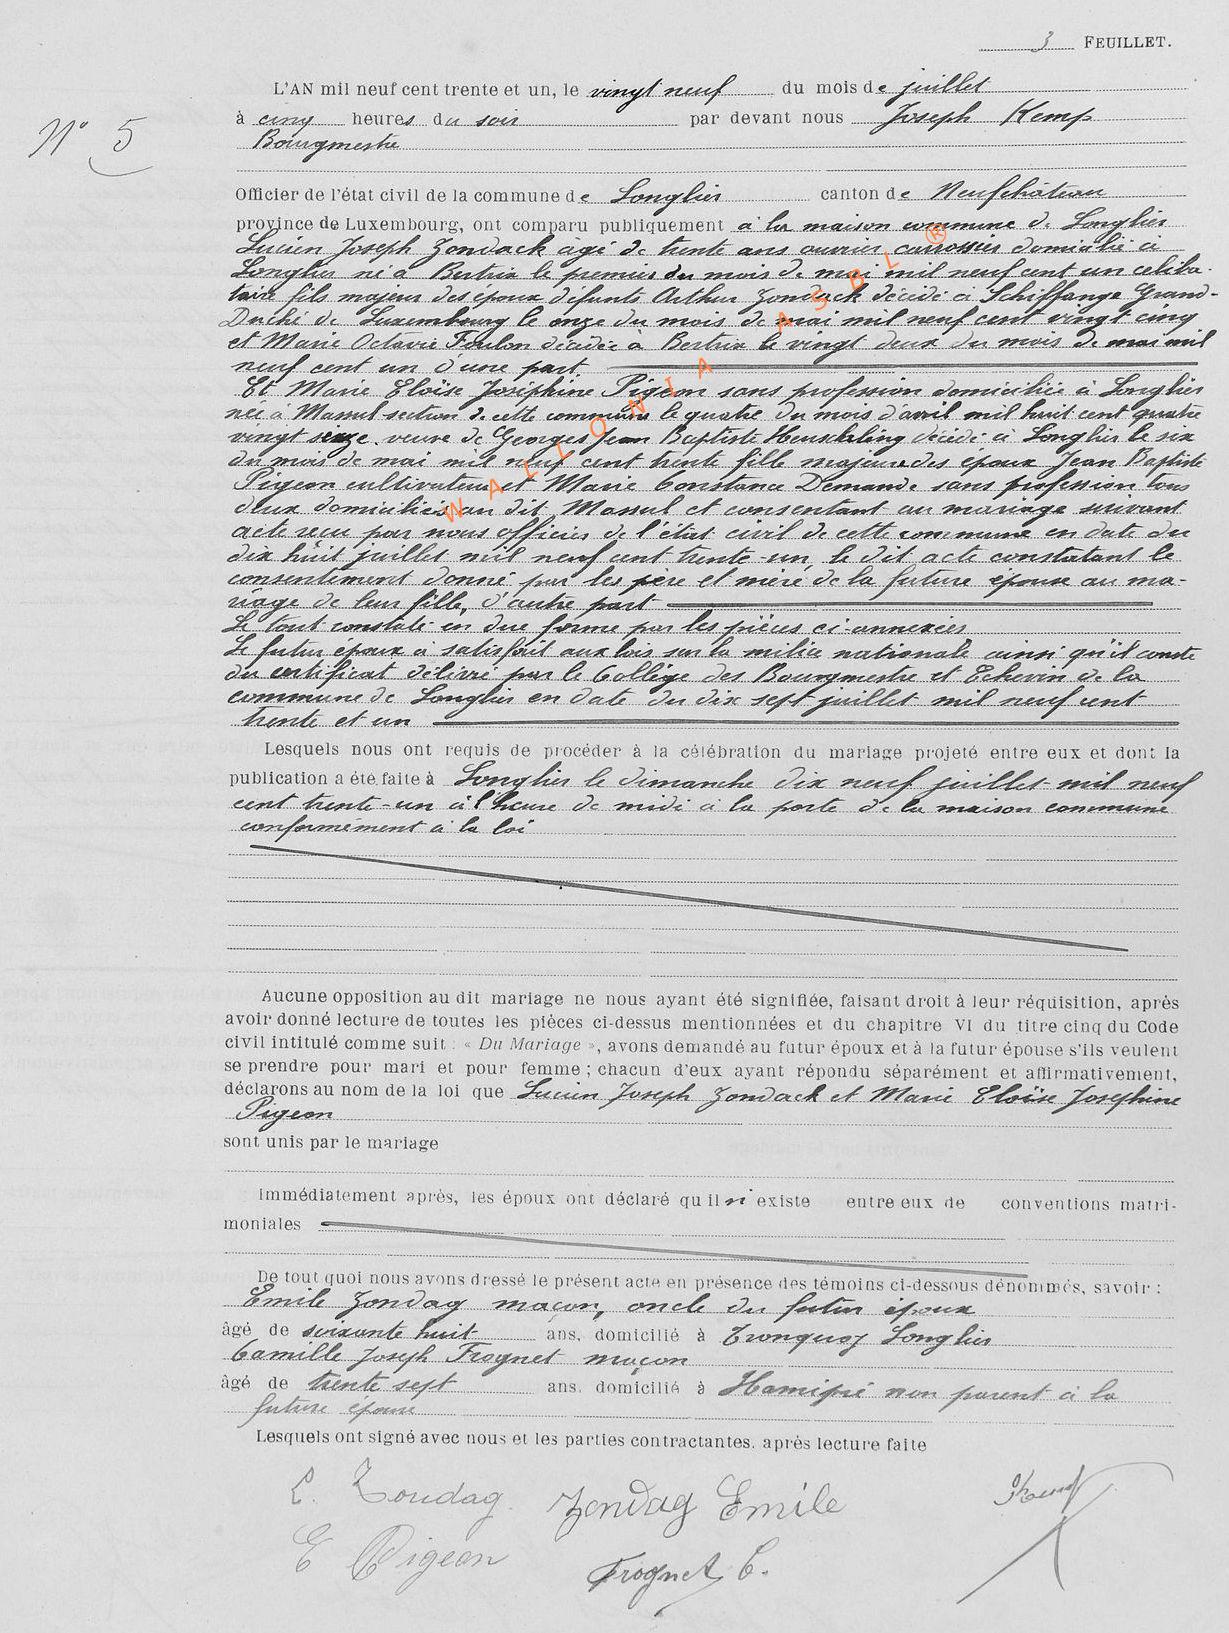 3 FEUILLET.
L'AN mil neuf cent trente et un, le vingt neuf du mois de juillet
N° 5
à cinq heures du soir par devant nous Joseph Kemp
Bourgmestre
Officier de l'état civil de la commune de Longlier canton de Neufchâteau
province de Luxembourg, ont comparu publiquement à la maison commune de Longlier
Lucien Joseph Zondack âgé de trente ans ouvrier carrossier domicilié à
Longlier né à Bertrix le premier du mois de mai mil neuf cent un céliba-
taire fils majeur des époux défunts Arthur Zondack décédé à Schifflange Grand-
Duché de Luxembourg le onze du mois de mai mil neuf cent vingt cinq
et Marie Octavie Foulon décédée à Bertrix le vingt deux du mois de mai mil
neuf cent un d'une part
Et Marie Eloïse Joséphine Pigeon sans profession domiciliée à Longlier
née à Massul section de cette commune le quatre du mois d'avril mil huit cent quatre
vingt seize veuve de Georges Jean Baptiste Heuschling décédé à Longlier le six
du mois de mai mil neuf cent trente fille majeure des époux Jean Baptiste
Pigeon cultivateur et Marie Constance Demande sans profession tous
deux domiciliés au dit Massul et consentant au mariage suivant
acte reçu par nous officier de l'état civil de cette commune en date du
dix huit juillet mil neuf cent trente-un le dit acte constatant le
consentement donné par les père et mère de la future épouse au ma-
riage de leur fille, d'autre part
Le tout constaté en due forme par les pièces ci-annexées
Le futur époux a satisfait aux lois sur la milice nationale ainsi qu'il conste
du certificat délivré par le Collège des Bourgmestre et Echevin de la
commune de Longlier en date du dix sept juillet mil neuf cent
trente et un
Lesquels nous ont requis de procéder à la célébration du mariage projeté entre eux et dont la
publication a été faite à Longlier le dimanche dix neuf juillet mil neuf
cent trente-un à l'heure de midi à la porte de la maison commune
conformément à la loi
Aucune opposition au dit mariage ne nous ayant été signifiée, faisant droit à leur réquisition, après
avoir donné lecture de toutes les pièces ci-dessus mentionnées et du chapitre VI du titre cinq du Code
civil intitulé comme suit : « Du Mariage », avons demandé au futur époux et à la futur épouse s'ils veulent
se prendre pour mari et pour femme ; chacun d'eux ayant répondu séparément et affirmativement,
déclarons au nom de la loi que Lucien Joseph Zondack et Marie Eloïse Joséphine
Pigeon
sont unis par le mariage
Immédiatement après, les époux ont déclaré qu'il n'existe entre eux de conventions matri-
moniales
De tout quoi nous avons dressé le présent acte en présence des témoins ci-dessous dénommés, savoir :
Emile Zondag maçon, oncle du futur époux
âgé de soixante huit ans, domicilié à Tronquoy Longlier
Camille Joseph Frognet maçon
âgé de trente sept ans, domicilié à Hamipré non parent à la
future épouse
Lesquels ont signé avec nous et les parties contractantes, après lecture faite
L. Zondag. Zondag Emile JKemp
E Pigeon Frognet C.
WALLONIA ASBL ®